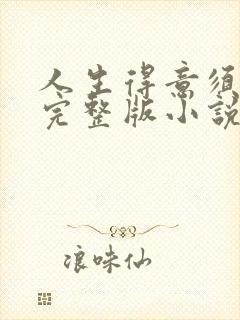 人生得意须
完整版小說
浪味仙